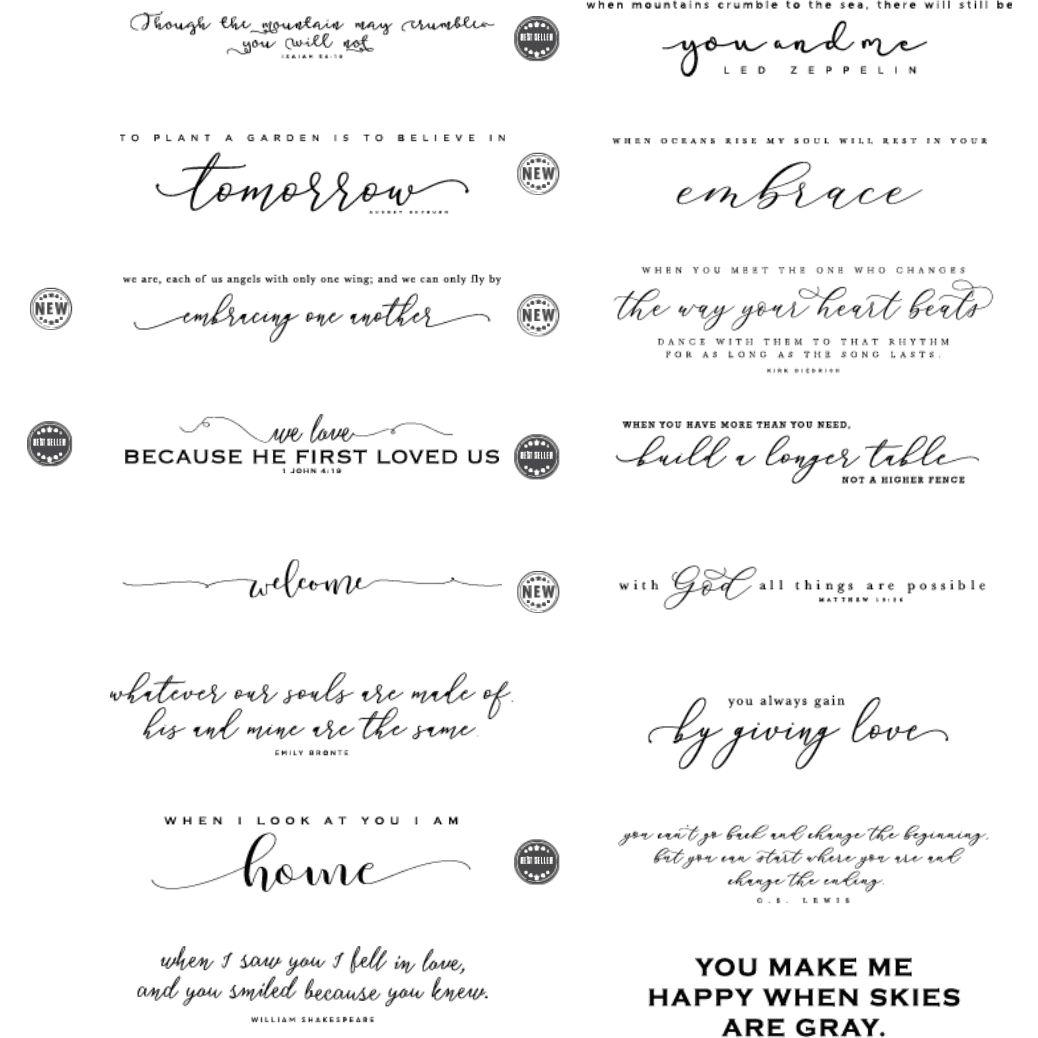 Though the mountain may crumble
you will not
ISAIAH 54:10
TO PLANT A GARDEN IS TO BELIEVE IN
tomorrow
AUDREY HEPBURN
NEW
we are, each of us angels with only one wing; and we can only fly by
embracing one another
BEST SELLER
we love
BECAUSE HE FIRST LOVED US
1 JOHN 4:19
welcome
whatever our souls are made of,
his and mine are the same.
EMILY BRONTE
WHEN I LOOK AT YOU I AM
home
when I saw you I fell in love,
and you smiled because you knew.
WILLIAM SHAKESPEARE
BEST SELLER
when mountains crumble to the sea, there will still be
you and me
LED ZEPPELIN
NEW
WHEN OCEANS RISE MY SOUL WILL REST IN YOUR
embrace
NEW
WHEN YOU MEET THE ONE WHO CHANGES
the way your heart beats
DANCE WITH THEM TO THAT RHYTHM
FOR AS LONG AS THE SONG LASTS.
KIRK DIEDRICH
BEST SELLER
WHEN YOU HAVE MORE THAN YOU NEED,
build a longer table
NOT A HIGHER FENCE
NEW
with God all things are possible
MATTHEW 19:26
you always gain
by giving love
BEST SELLER
you can't go back and change the beginning,
but you can start where you are and
change the ending.
C.S. LEWIS
YOU MAKE ME
HAPPY WHEN SKIES
ARE GRAY.